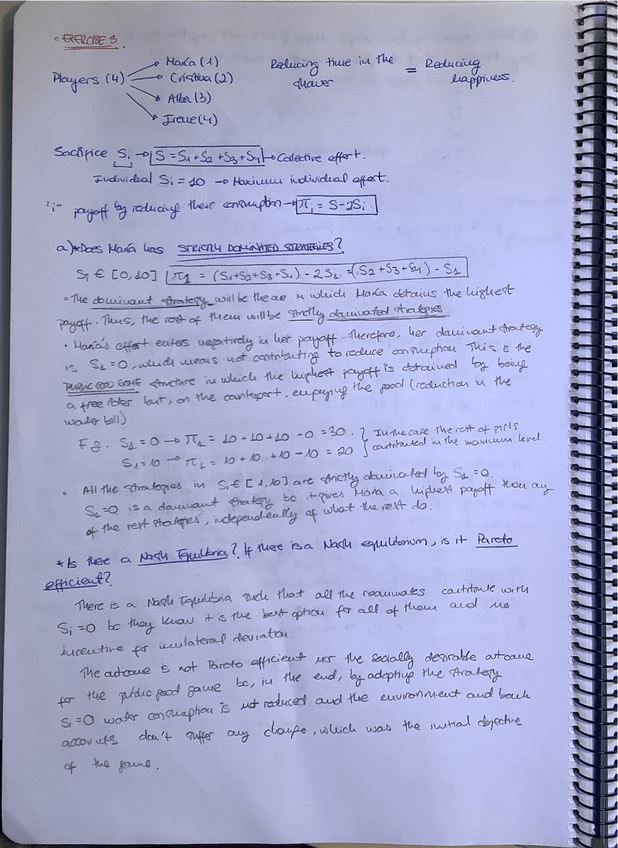 • EXERCISE 3.
Players (4)
María (1)
Cristina (2)
Alba (3)
Irene (4)
Reducing time in the shower = Reducing happiness.
Sacrifice Si → S = S1 + S2 + S3 + S4 → Collective effort.
Individual Si = 10 → Maximum individual effort.
"i" payoff by reducing their consumption → πi = S - 2Si
a) * Does María has STRICTLY DOMINATED STRATEGIES?
Si ∈ [0,10] π1 = (S1+S2+S3+S4) - 2S1 = (S2+S3+S4) - S1
• The dominant strategy will be the one in which María obtains the highest
payoff. Thus, the rest of them will be strictly dominated strategies
• María's effort enters negatively in her payoff. Therefore, her dominant strategy
is S1 = 0, which means not contributing to reduce consumption. This is the
PUBLIC GOOD GAME structure in which the highest payoff is obtained by being
a free rider but, on the counterpart, enjoying the good (reduction in the
water bill).
E.g. S1 = 0 → π1 = 10 + 10 + 10 - 0 = 30. } In the case the rest of girls
S1 = 10 → π1 = 10 + 10 + 10 - 10 = 20 } contributed in the maximum level.
• All the strategies in Si ∈ [1,10] are strictly dominated by S1 = 0.
S1 = 0 is a dominant strategy bc it gives María a highest payoff than any
of the rest strategies, independently of what the rest do.
* Is there a Nash Equilibria? If there is a Nash equilibrium, is it Pareto
efficient?
There is a Nash Equilibria such that all the roommates contribute with
Si = 0 bc they know it is the best option for all of them and no
incentive for unilateral deviation.
The outcome is not Pareto efficient nor the socially desirable outcome
for the public good game bc, in the end, by adopting the strategy
Si = 0 water consumption is not reduced and the environment and bank
accounts don't suffer any change, which was the initial objective
of the game.